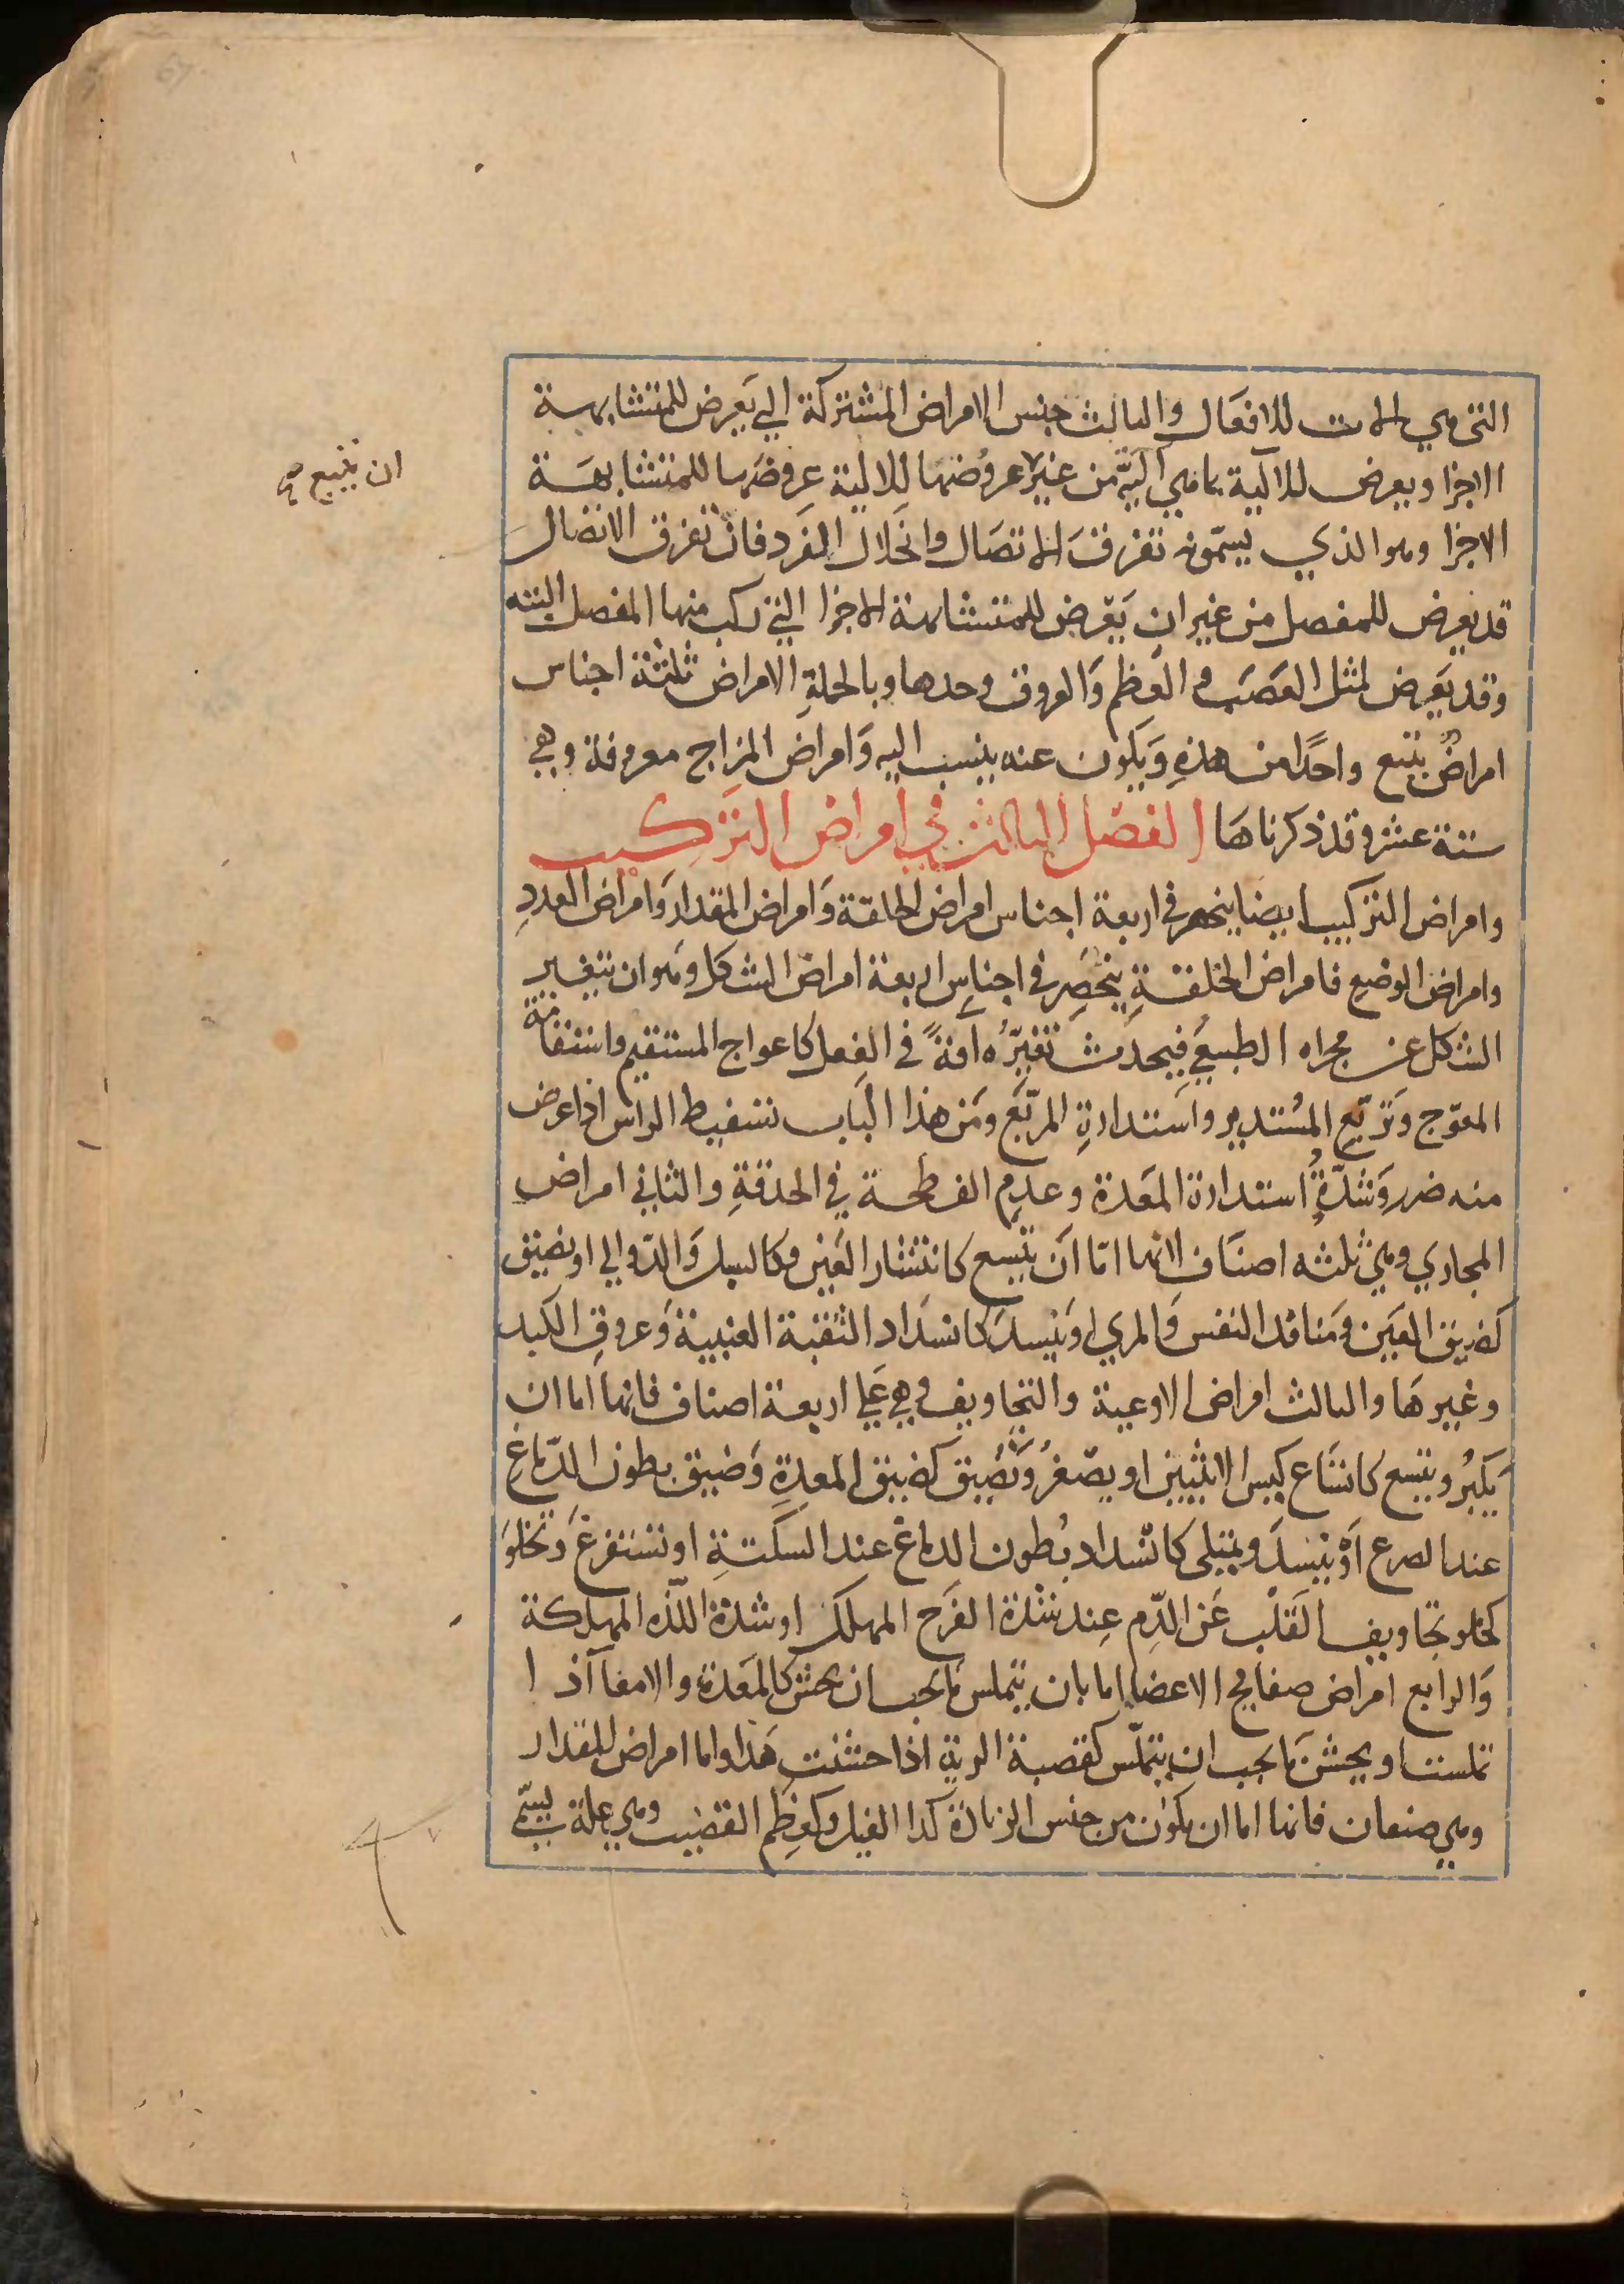 التي هي الات للافعال والثالث جنس الامراض المشتركة التي يعرض للمتشابهة
الاجزا ويعرض للالية بما هي الية من غير عروضها للالية عروضها للمتشابهة
ان يتبع صح
الاجزا وهو الذي يسمونه تفرق الاتصال وانحلال الفرد فان تفرق الاتصال
قد يعرض للمفصل من غير ان يعرض للمتشابهة الاجزا التي ركب منها المفصل البته
وقد يعرض لمثل العصب و العظم والعروق وحدها وبالجملة الامراض ثلثة اجناس
امراض يتبع واحدًا من هذه ويكون عنه ينسب اليه وامراض المزاج معروفة وهي
ستة عشر وقد ذكرناها الفصل الثالث في امراض التركيب
وامراض التركيب ايضا ينحصر في اربعة اجناس امراض الخلقة وامراض المقدار وامراض العدد
وامراض الوضع فامراض الخلقة ينحصر في اجناس اربعة امراض الشكل وهو ان يتغير
الشكل عن مجراه الطبيعي فيحدث تغيره افة في الفعل كاعواج المستقيم واستقامة
المعوج وتربيع المستدير واستدارة المربع ومن هذا الباب تسفيط الراس اذا عرض
منه ضرر وشدة استدارة المعدة وعدم الفطحة في الحدقة والثاني امراض
المجاري وهي ثلثه اصناف لانها اما ان يتسع كانتشار العين وكالسبل والدوالي او يضيق
كضيق العين ومنافذ النفس والمري او ينسد كانسداد الثقبة العنبية وعروق الكبد
وغيرها والثالث امراض الاوعية والتجاويف وهي علي اربعة اصناف فانها اما ان
يكبر ويتسع كاتساع كيس الانثيين او يصغر ويضيق كضيق المعدة وضيق بطون الدماغ
عند الصرع او ينسد ويمتلي كانسداد بطون الدماغ عند السكتة او تستفرغ وتخلو
كخلو تجاويف القلب عن الدم عند شدة الفرح المهلك او شدة اللذه المهلكة
والرابع امراض صفايح الاعضا اما بان يتملس ما يجب ان يخشن كالمعدة والامعا اذا
تملست او يخشن ما يجب ان يتملس كقصبة الرية اذا خشنت هذا واما امراض المقدار
وهي صنفان فانها اما ان يكون من جنس الزيادة كدا الفيل وكعظم القضيب وهي علة يسمى